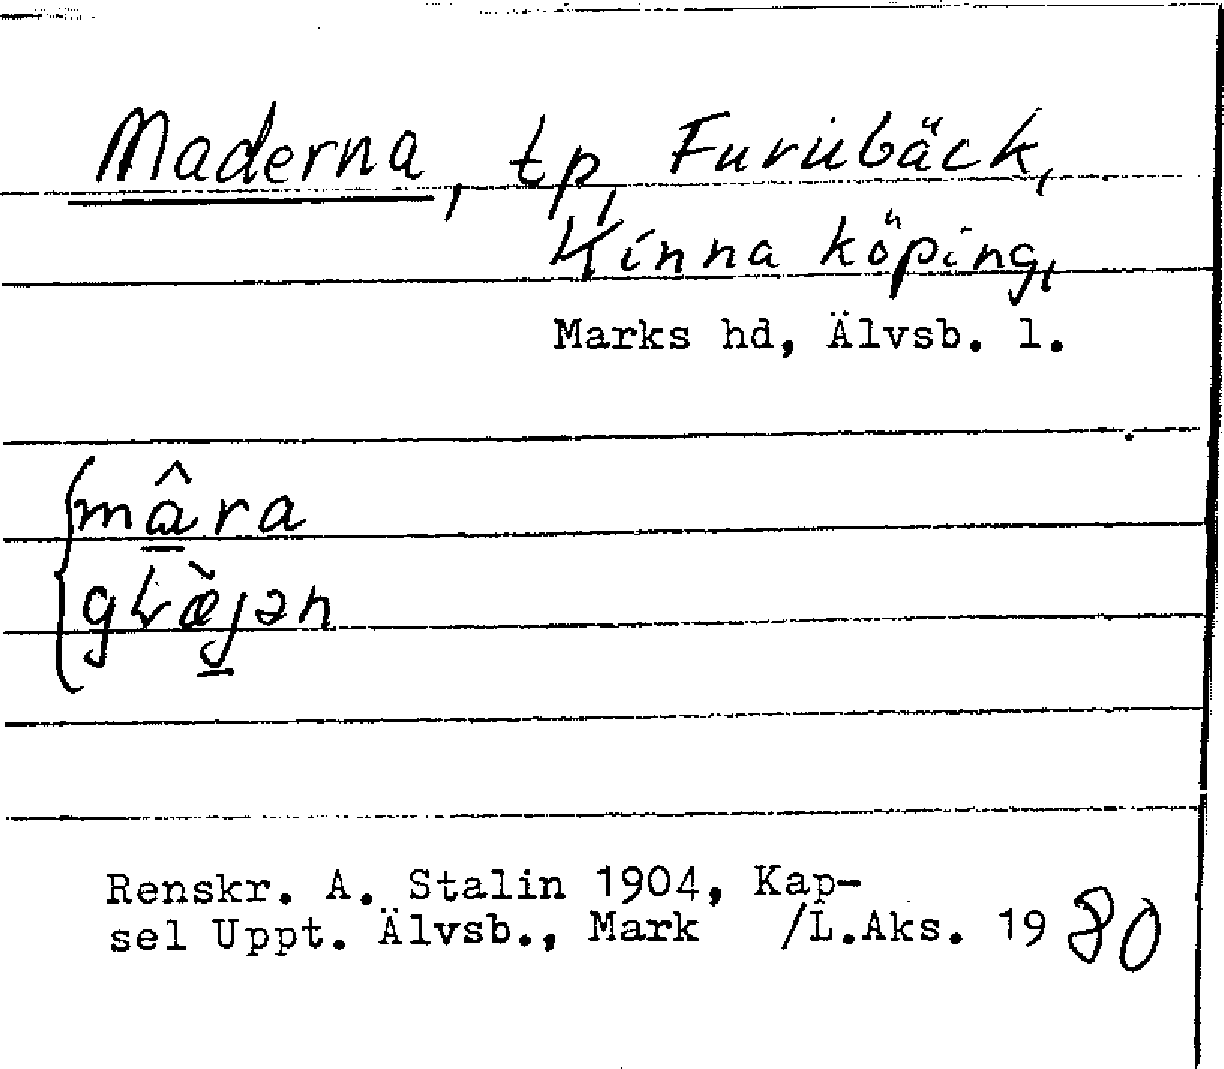 Maderna, tp, Furubäck,
Kinna köping,
Marks hd, Älvsb. l.
mâ̲ra
Renskr. A. Stalin 1904, Kap-
sel Uppt. Älvsb., Mark /L.Aks. 1980